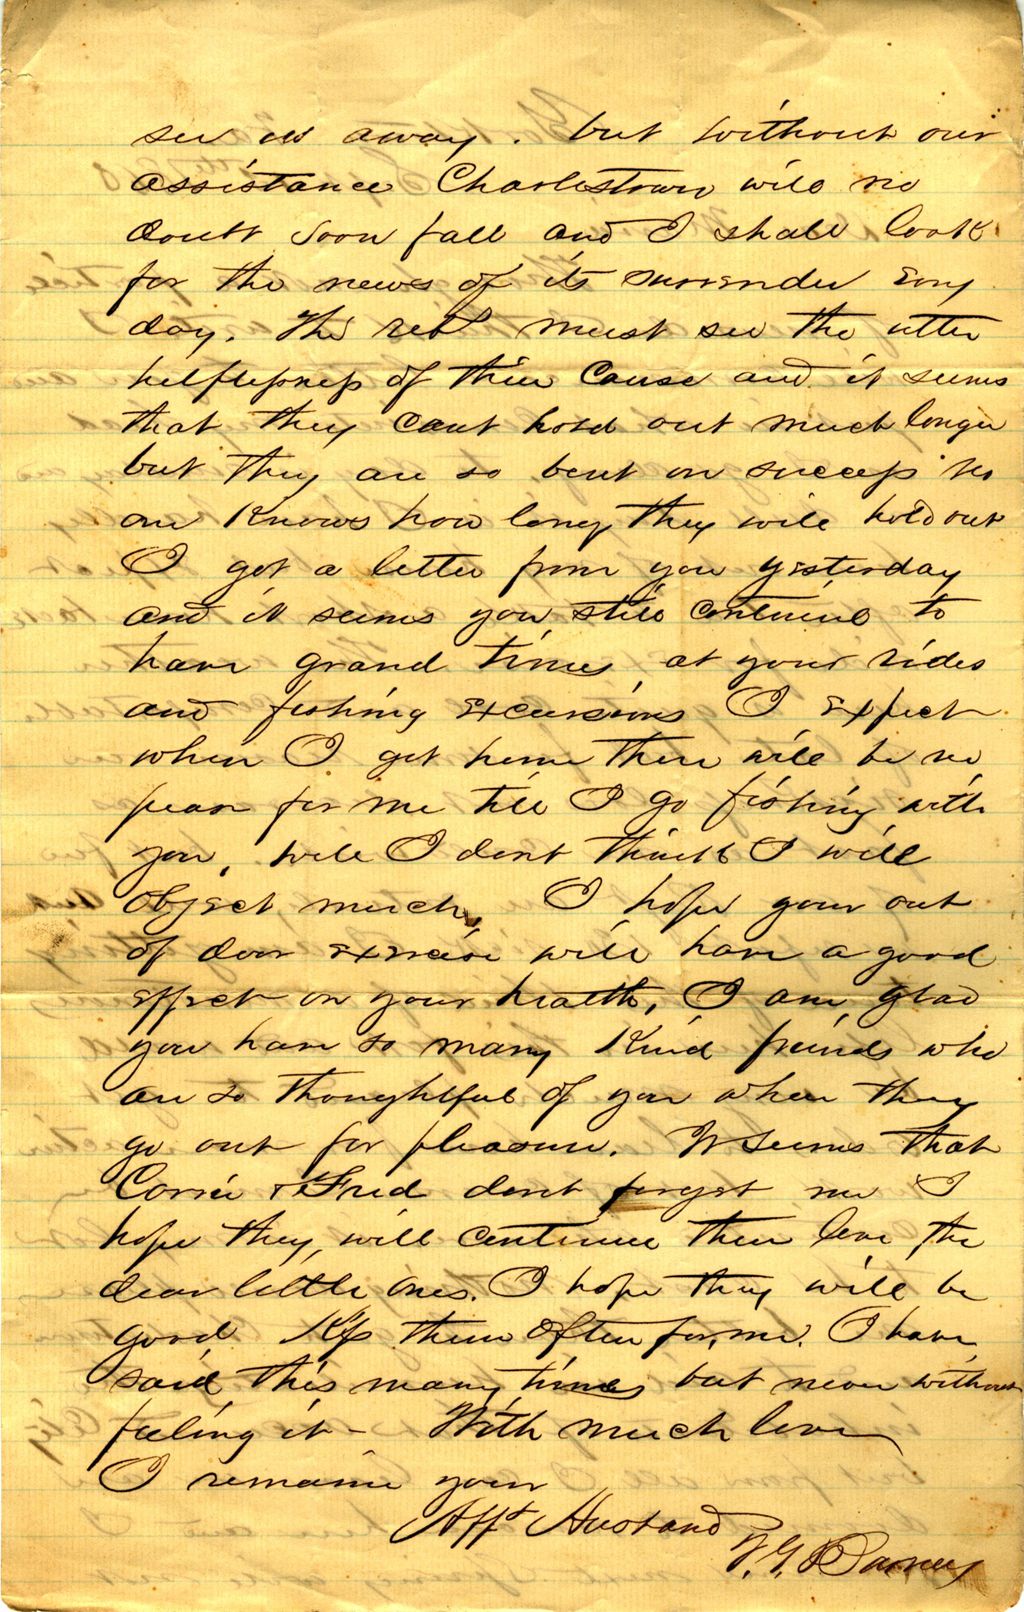 see us away. but without our
assistance Charlestown will no
doubt soon fall and I shall look
for the news of its surrender every
day. The reb must see the utter
helplessness of their Cause and it seems
that they cant hold out much longer
but they are so bent on success no
one Knows how long they will hold out
I got a letter from you yesterday
and it seems you still continue to
have grand times at your rides
and fishing excursions I expect
when I get home there will be no
peace for me till I go fishing with
you, well I dont think I will
object much. I hope your out
of door exercise will have a good
effect on your health, I am glad
you have so many Kind freinds who
are so thoughtful of you when they
go out for pleasure. It seems that
Carrie & Fred dont forget me I
hope they will continue their love the
dear little ones. I hope they will be
good Kiss them often for me. I have
said this many times but never without
feeling it - With much love
I remain your
Afft Husband
V. G. Barney